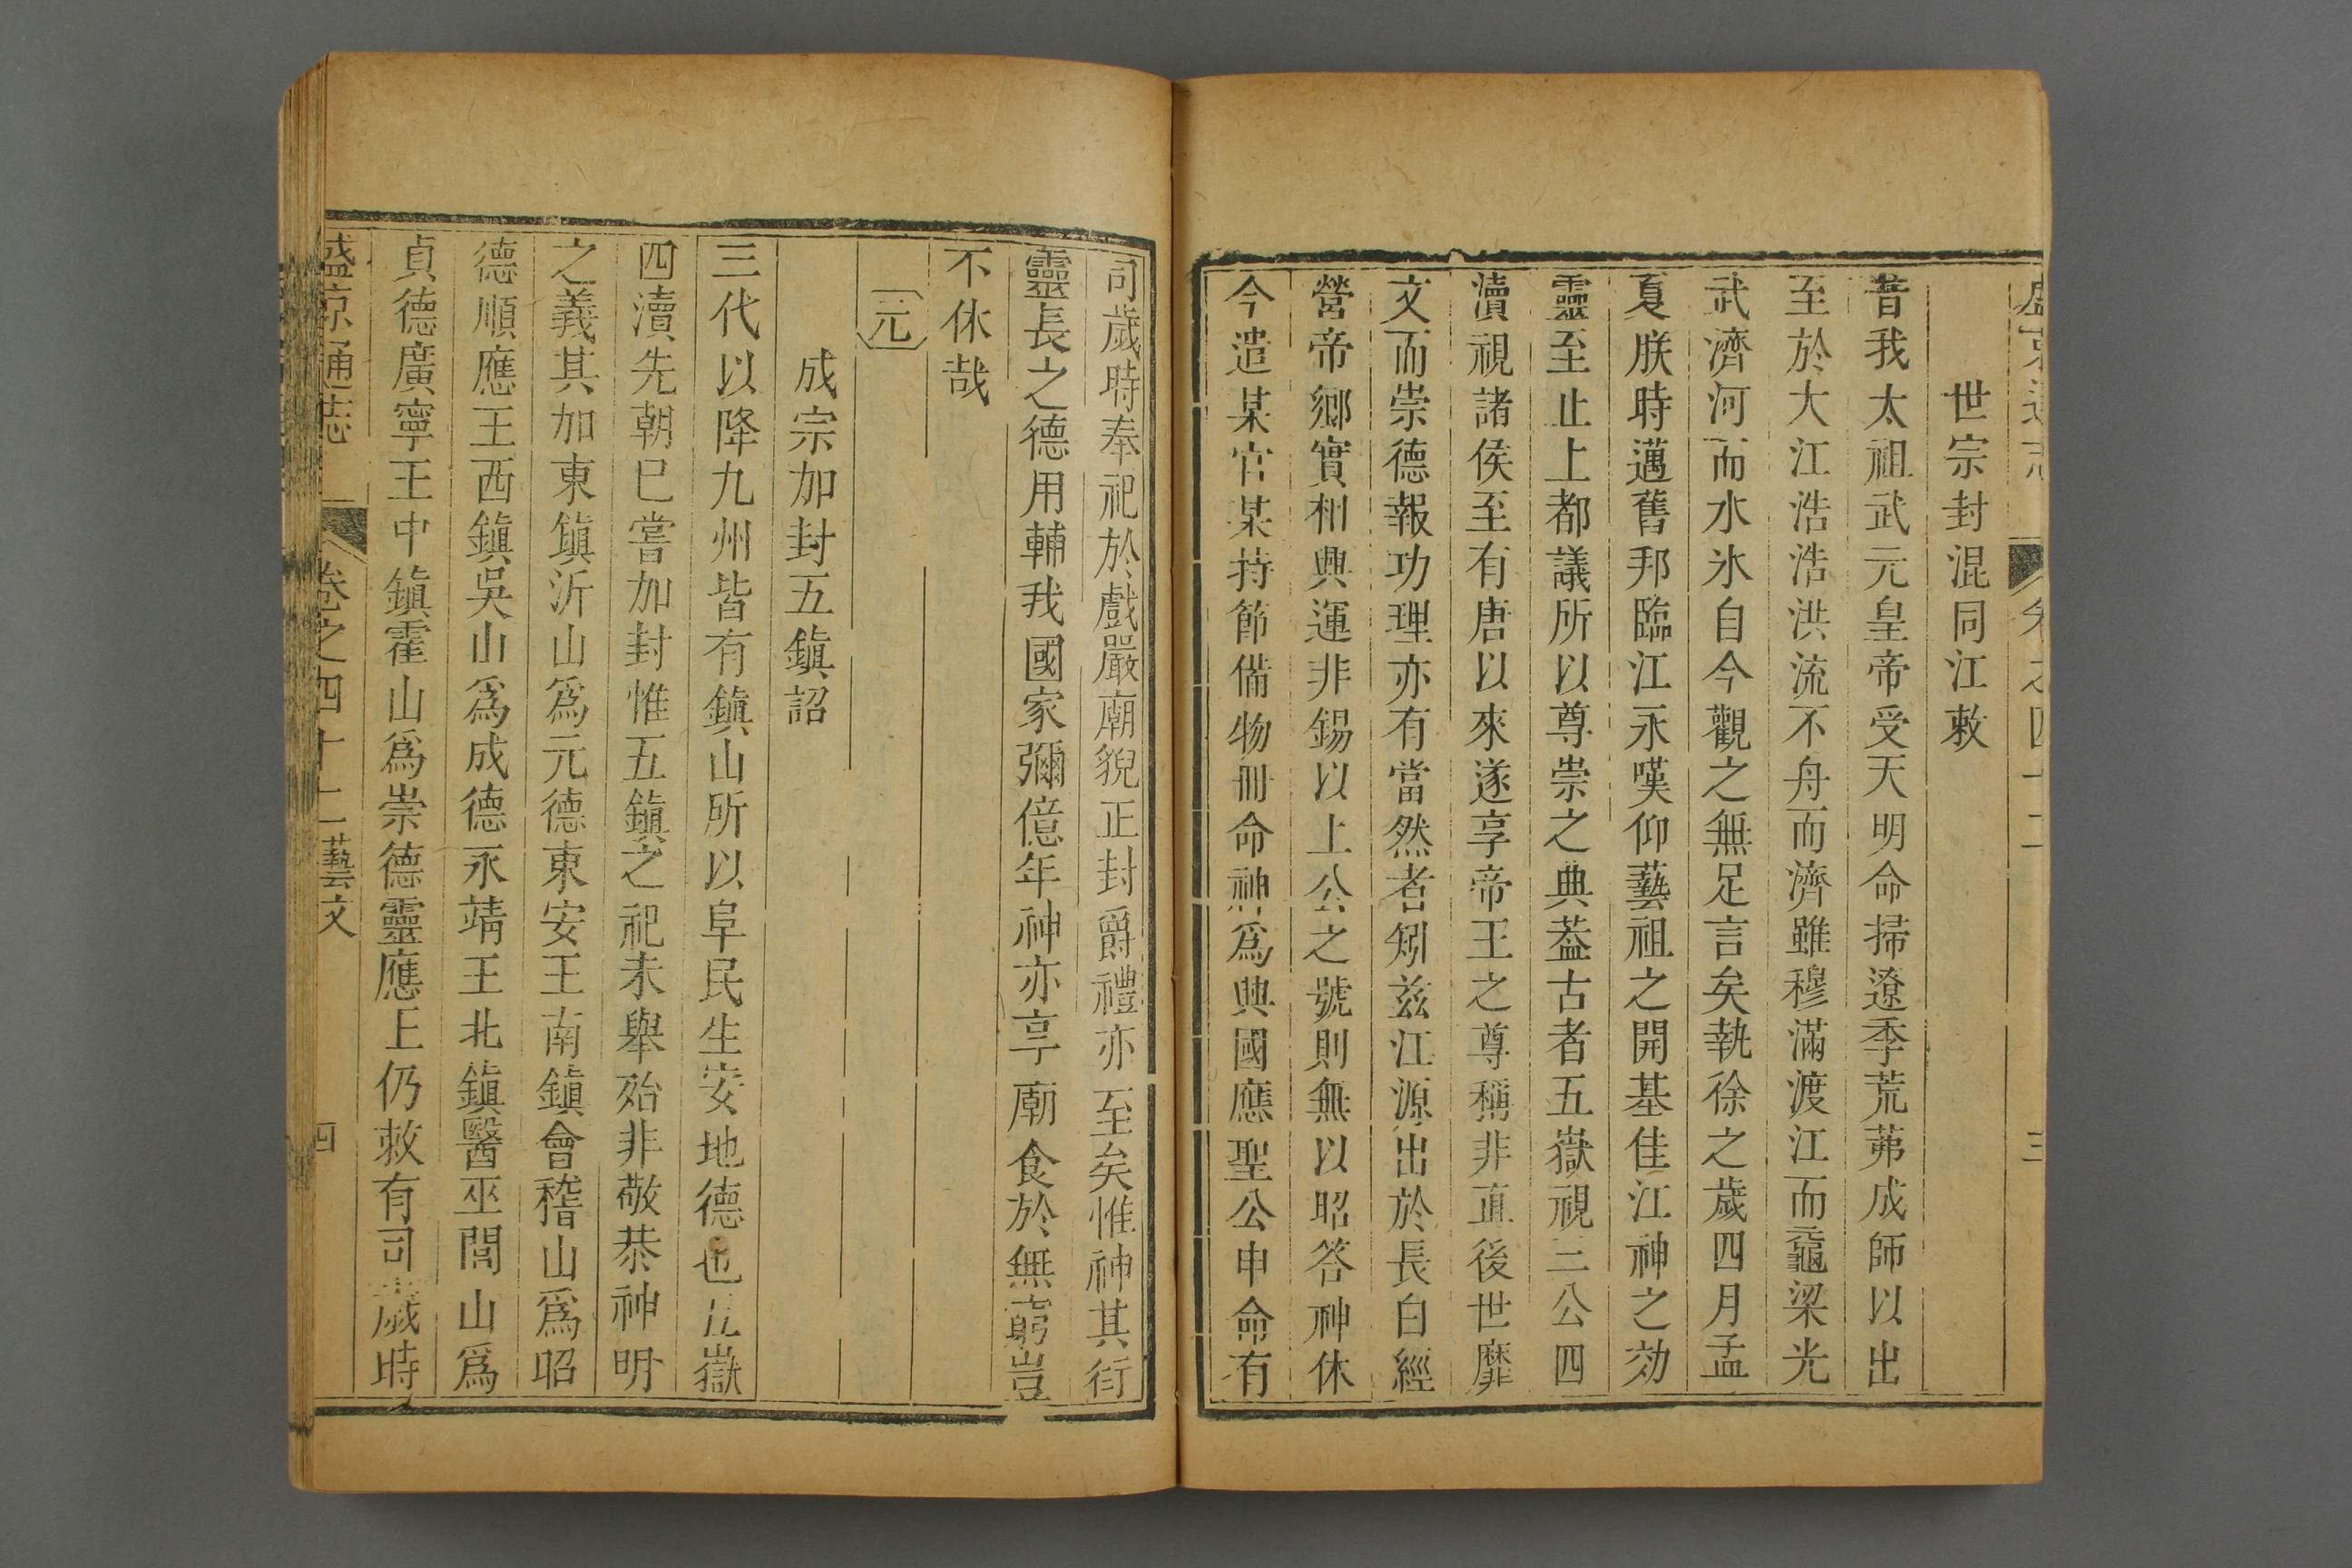 世宗封混同江敕
昔我太祖武元皇帝受天明命掃遼季荒茀成師以出
至於大江浩浩洪流不舟而濟雖穆滿渡江而黿梁光
武濟河而水氷自今觀之無足言矣執徐之歲四月孟
夏朕時邁舊邦臨江永嘆仰藝祖之開基佳江神之効
靈至止上都議所以尊崇之典葢古者五嶽視三公四
瀆視諸侯至有唐以來遂享帝王之尊稱非直後世靡
文而崇德報功理亦有當然者矧兹江源出於長白經
營帝鄉實相興運非錫以上公之號則無以昭答神休
今遣某官某持節備物冊命神爲興國應聖公申命有
司歲時奉祀於戲嚴廟貌正封爵禮亦至矣惟神其衍
靈長之德用輔我國家彌億年神亦享廟食於無窮豈
不休哉
元
成宗加封五鎭詔
三代以降九州皆有鎭山所以阜民生安地德也五嶽
四瀆先朝已嘗加封惟五鎭之祀未舉殆非敬恭神明
之義其加東鎭沂山爲元德東安王南鎭會稽山爲昭
德順應王西鎭吳山爲成德永靖王北鎭醫巫閭山爲
貞德廣寧王中鎭霍山爲崇德靈應王仍敕有司歲時
盛京通志 卷之四十二藝文 四